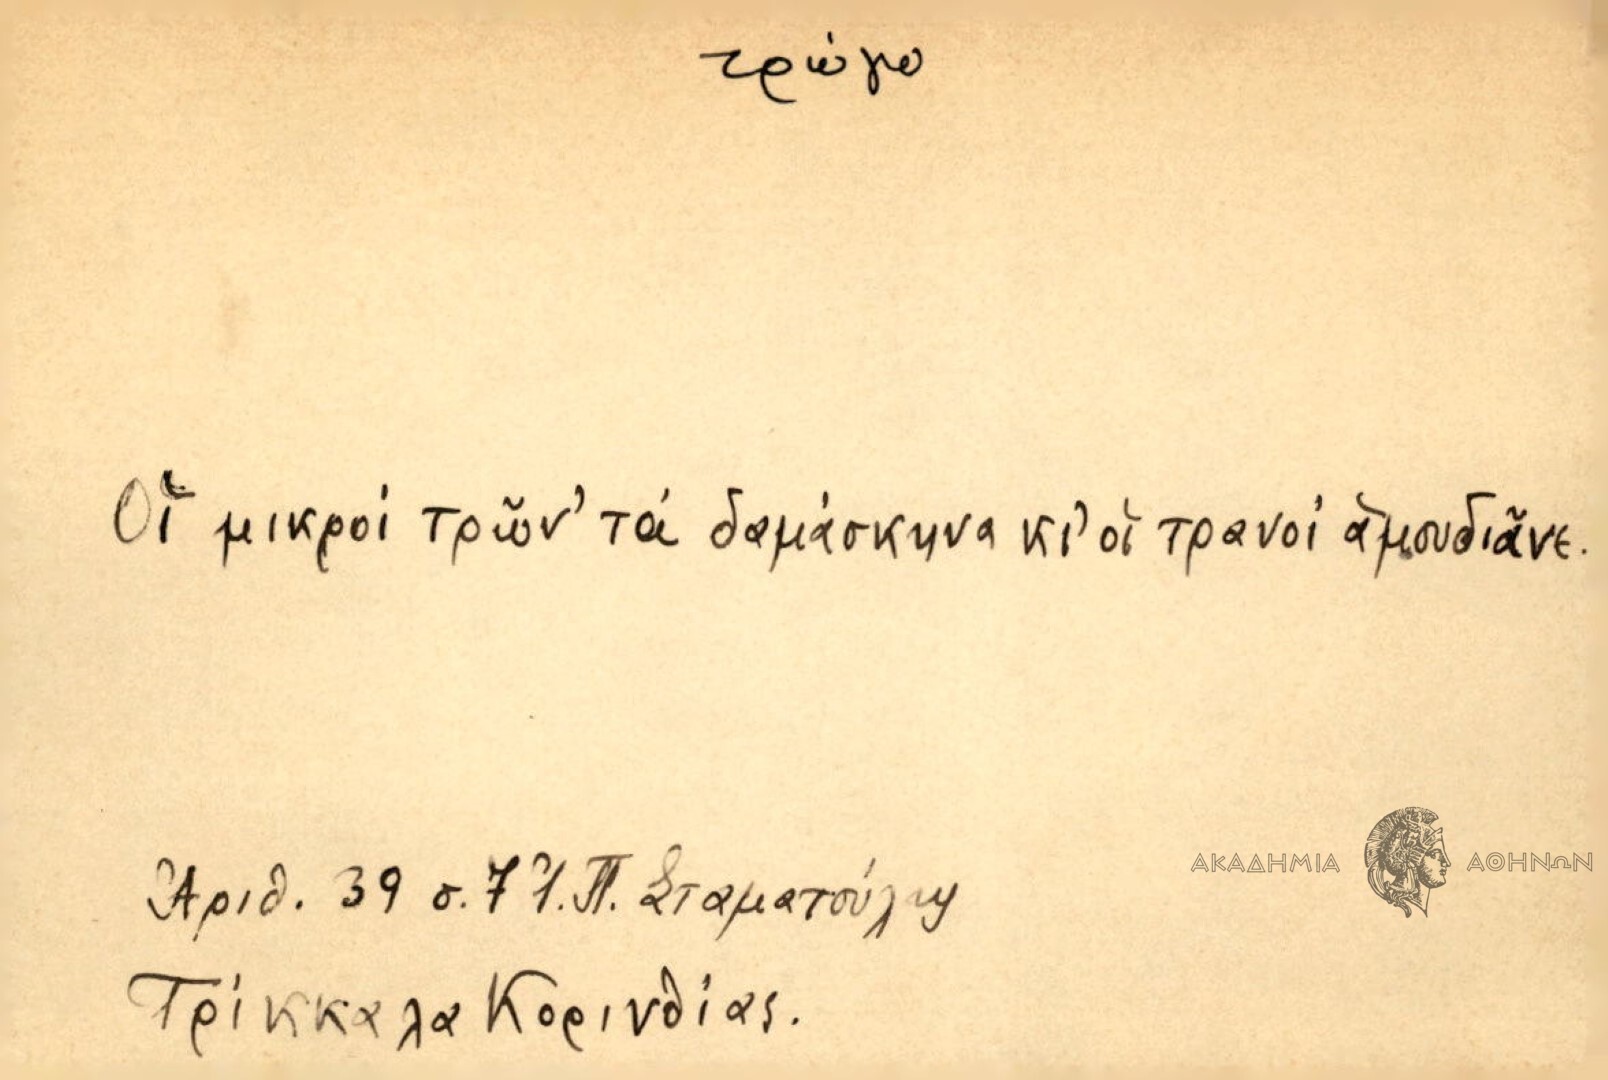 τρώγω
Οἱ μικροί τρῶν' τά δαμάσκηνα κι' οἱ τρανοί ἁμουδιᾶνε.
Ἀριθ. 39 σ. 7 Ἰ. Π. Σταματούλης
ΑΚΑΔΗΜΙΑ ΑΘΗΝΩΝ
Τρίκκαλα Κορινθίας.